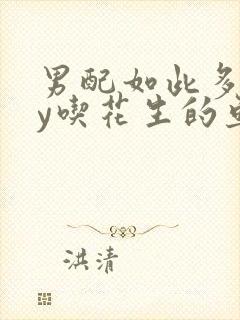 男配如此多
y喫花生的
洪清